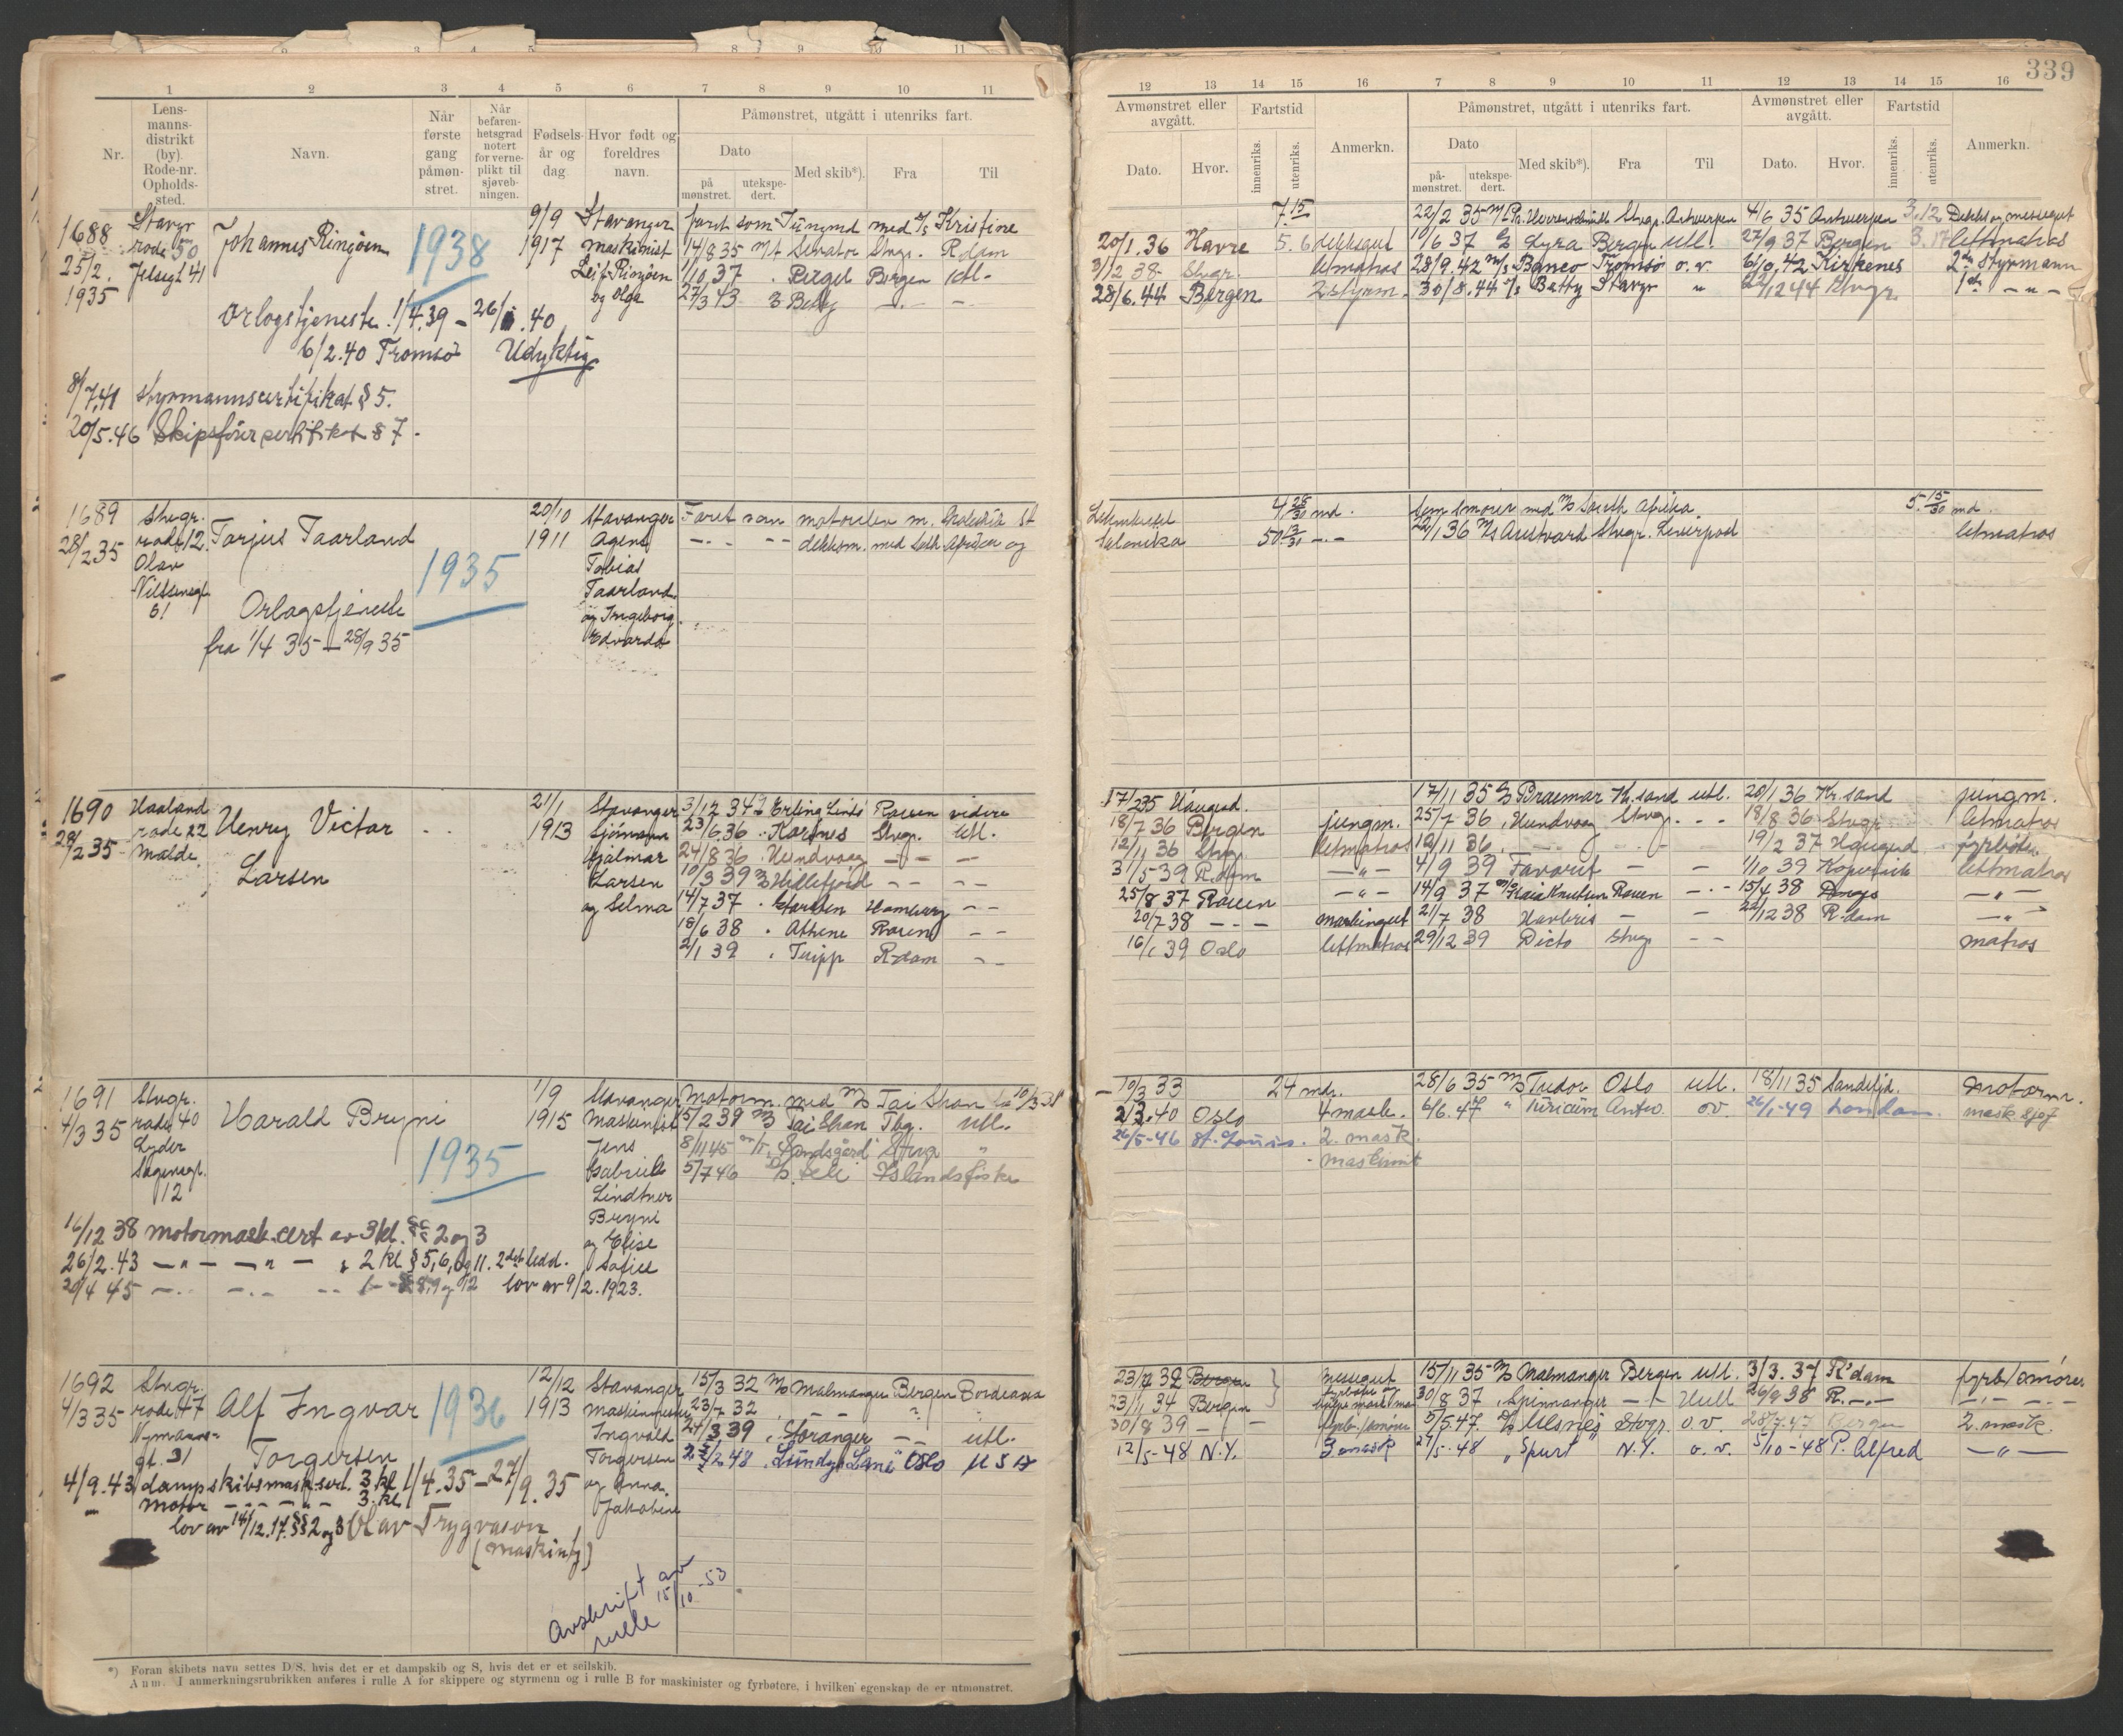 339
1 2 3 4 5 6 7 8 9 10 11
Nr.
Lens-
manns-
distrikt
(by).
Rode-nr.
Opholds-
sted.
Navn.
Når
første
gang
påmøn-
stret.
Når
befaren-
hetsgrad
notert
for verne-
plikt til
sjøveb-
ningen.
Fødsels-
år og
dag.
Hvor født og
foreldres
navn.
Påmønstret, utgått i utenriks fart.
Dato
på
mønstret.
utekspe-
dert.
Med skib*).
Fra
Til
12 13 14 15 16 7 8 9 10 11 12 13 14 15 16
Avmønstret eller
avgått.
Dato.
Hvor.
Fartstid
innenriks.
utenriks.
Anmerkn.
Påmønstret, utgått i utenriks fart.
Dato
på-
mønstret.
utekspe-
dert.
Med skib*).
Fra
Til
Avmønstret eller
avgått.
Dato.
Hvor.
Fartstid
innenriks.
utenriks.
Anmerkn.
1688
25/2.
1935
Stavgr
rode 50
Jelsagt 41
Johannes Ringøen
1938
9/9
1917
Stavanger
maskinist
Leif Ringøen
og Olga
faret som Jungmd med Kristine
14/8 35 M/t Senator Stvgr. R.dam
1/10 37 Bergen utl.
27/3 43 Betty
Orlogstjeneste 1/4.39 - 26/1.40
6/2.40 Tromsø Udyktig
8/7.41 styrmannscertifikat § 5.
20/5.46 Skipsførercertifikat § 7.
20/1.36 Havre 5. 6 dekksgut
3/12 38 Stvgr. letmatros
28/6.44 Bergen 2 styrm.
22/2 35 Stvgr. Antwerpen 4/6 35 Antwerpen 3.12 Dekks og messegut
1/6 37 Lyra Bergen utl. 27/9 37 Bergen 3.17 lettmatros
28/9.42 M/s Banco Tromsø o.v. 6/10.42 Kirkenes 2den Styrmann
30/8.44 Betty Stavgr " 22/12 44 Stvgr. 1ste - " -
1689
28/2 35
Stvgr.
rode 12.
Olav
61
Tarjus Taarland
1935
Orlogstjeneste
fra 1/4 35 - 28/9 35
20/10
1911
Stavanger
Agent
Tobias
Taarland
og Ingeborg
Edvarda
Faret som
dekksm. med Afrika og
Salonika
4 28/30 md.
50 13/31
Som smører med M/s South Afrika. 5. 15/30 md.
22/1 36 M/s Austvard Stvgr. Liverpool letmatros
1690
28/2 35
Haaland
rode 22
Malde
Henry Victor
Larsen
21/1
1913
Stavanger
Sjømann
Hjalmar
Larsen
og Selma
3/12 34 Erling Lindø Rouen videre
23/6 36 Karmes Stvgr. Utl.
24/8 36 Hundvaag
10/3 39 Hillefjord
14/7 37 Hamburg
18/6 38 Athene Rouen
2/1 39 Tripp R-dam
17/2 35 Haugesd.
18/7 36 Bergen jungm.
12/11 36 Stvgr. letmatros
31/5 39 R.dam
25/8 37 Rouen
20/7 38 maskingut
16/1 39 Oslo lettmatros
17/11 35 Braemar Kr.sand utl. 20/1 36 Kr.sand jungm.
25/7 36 Hundvaag Stvgr. 18/8 36 Stvgr. letmatros
12/11 36 19/2 37 Haugesd fyrbøter
4/9 39 Favorit 1/10 39 Kopervik lettmatros
14/9 37 Kaia Knudsen Rouen 15/4 38
21/7 38 Havbris 22/12 38 R-dam
29/12 39 Dicto Stvgr matros
1691
4/3 35
Stvgr.
rode 40
Lyder
Sagensgt.
12
Harald Bryni
1935
1/9
1915
Stavanger
Maskinist
Jens
Gabriel
Lindtner
Bryni
og Elise
Sofie
Motorm. med M/s Tai Shan
15/2 39 M/s Tai Shan Tbg. Utl.
8/11 45 "Sandsgård" Stvgr "
5/7 46 Islandsfiske
16/12 38 motormask.cert av 3 kl. §§ 2 og 3
26/2.43 - " - - " - 2 kl § 5, 6, og 11. 2det ledd.
20/4 45 8, 9 og 12 lov av 9/2.1923.
10/3 33 24 mdr.
2/3.40 Oslo 4 mask.
26/5-46 St. Louis. 2. mask.
maskinist
28/6 35 M/s Tudor Oslo utl. 18/11 35 Sandefjd. motorm.
6/6.47 " Turicum Antw. o.v. 26/1-49 London. mask
1692
4/3 35
Stvgr.
rode 47
Nymanns-
gt. 31
Alf Ingvar
Torgersen
1936
12/12
1913
Stavanger
Maskinmester
Ingvald
Torgersen
og Anna
Jakobine
15/3 32 M/s Malmanger Bergen Bordeaux
23/7 32
24/3 39 Storanger utl.
2/2.48 "Lundys Lane" Oslo USA
4/9.43 dampskibsmask.sert. 3 kl 1/4.35 - 27/9.35
motor 3. kl
lov av 14/12.17. §§ 2 og 3 Olav Trygvason
(maskintj)
Avskrift av
rulle 15/10-53
23/7 32 Bergen messegut
23/11 34 Bergen
30/8 39 fyrb./smører
12/5-48 N.Y. 3 mask
15/11 35 M/s Malmanger Bergen utl. 3/3. 37 R'dam fyrb/smører
30/8 37 Spinnanger Hull 26/9 38 R.
5/5.47. Ulsnes Stvgr. o.v. 28/7.47 Bergen 2. mask.
27/5-48 "Spurt" N.Y. o.v. 5/10-48 P. Alfred - " -
*) Foran skibets navn settes D/S, hvis det er et dampskib og S, hvis det er et seilskib.
Anm. I anmerkningsrubrikken anføres i rulle A for skippere og styrmenn og i rulle B for maskinister og fyrbøtere, i hvilken egenskap de er utmønstret.